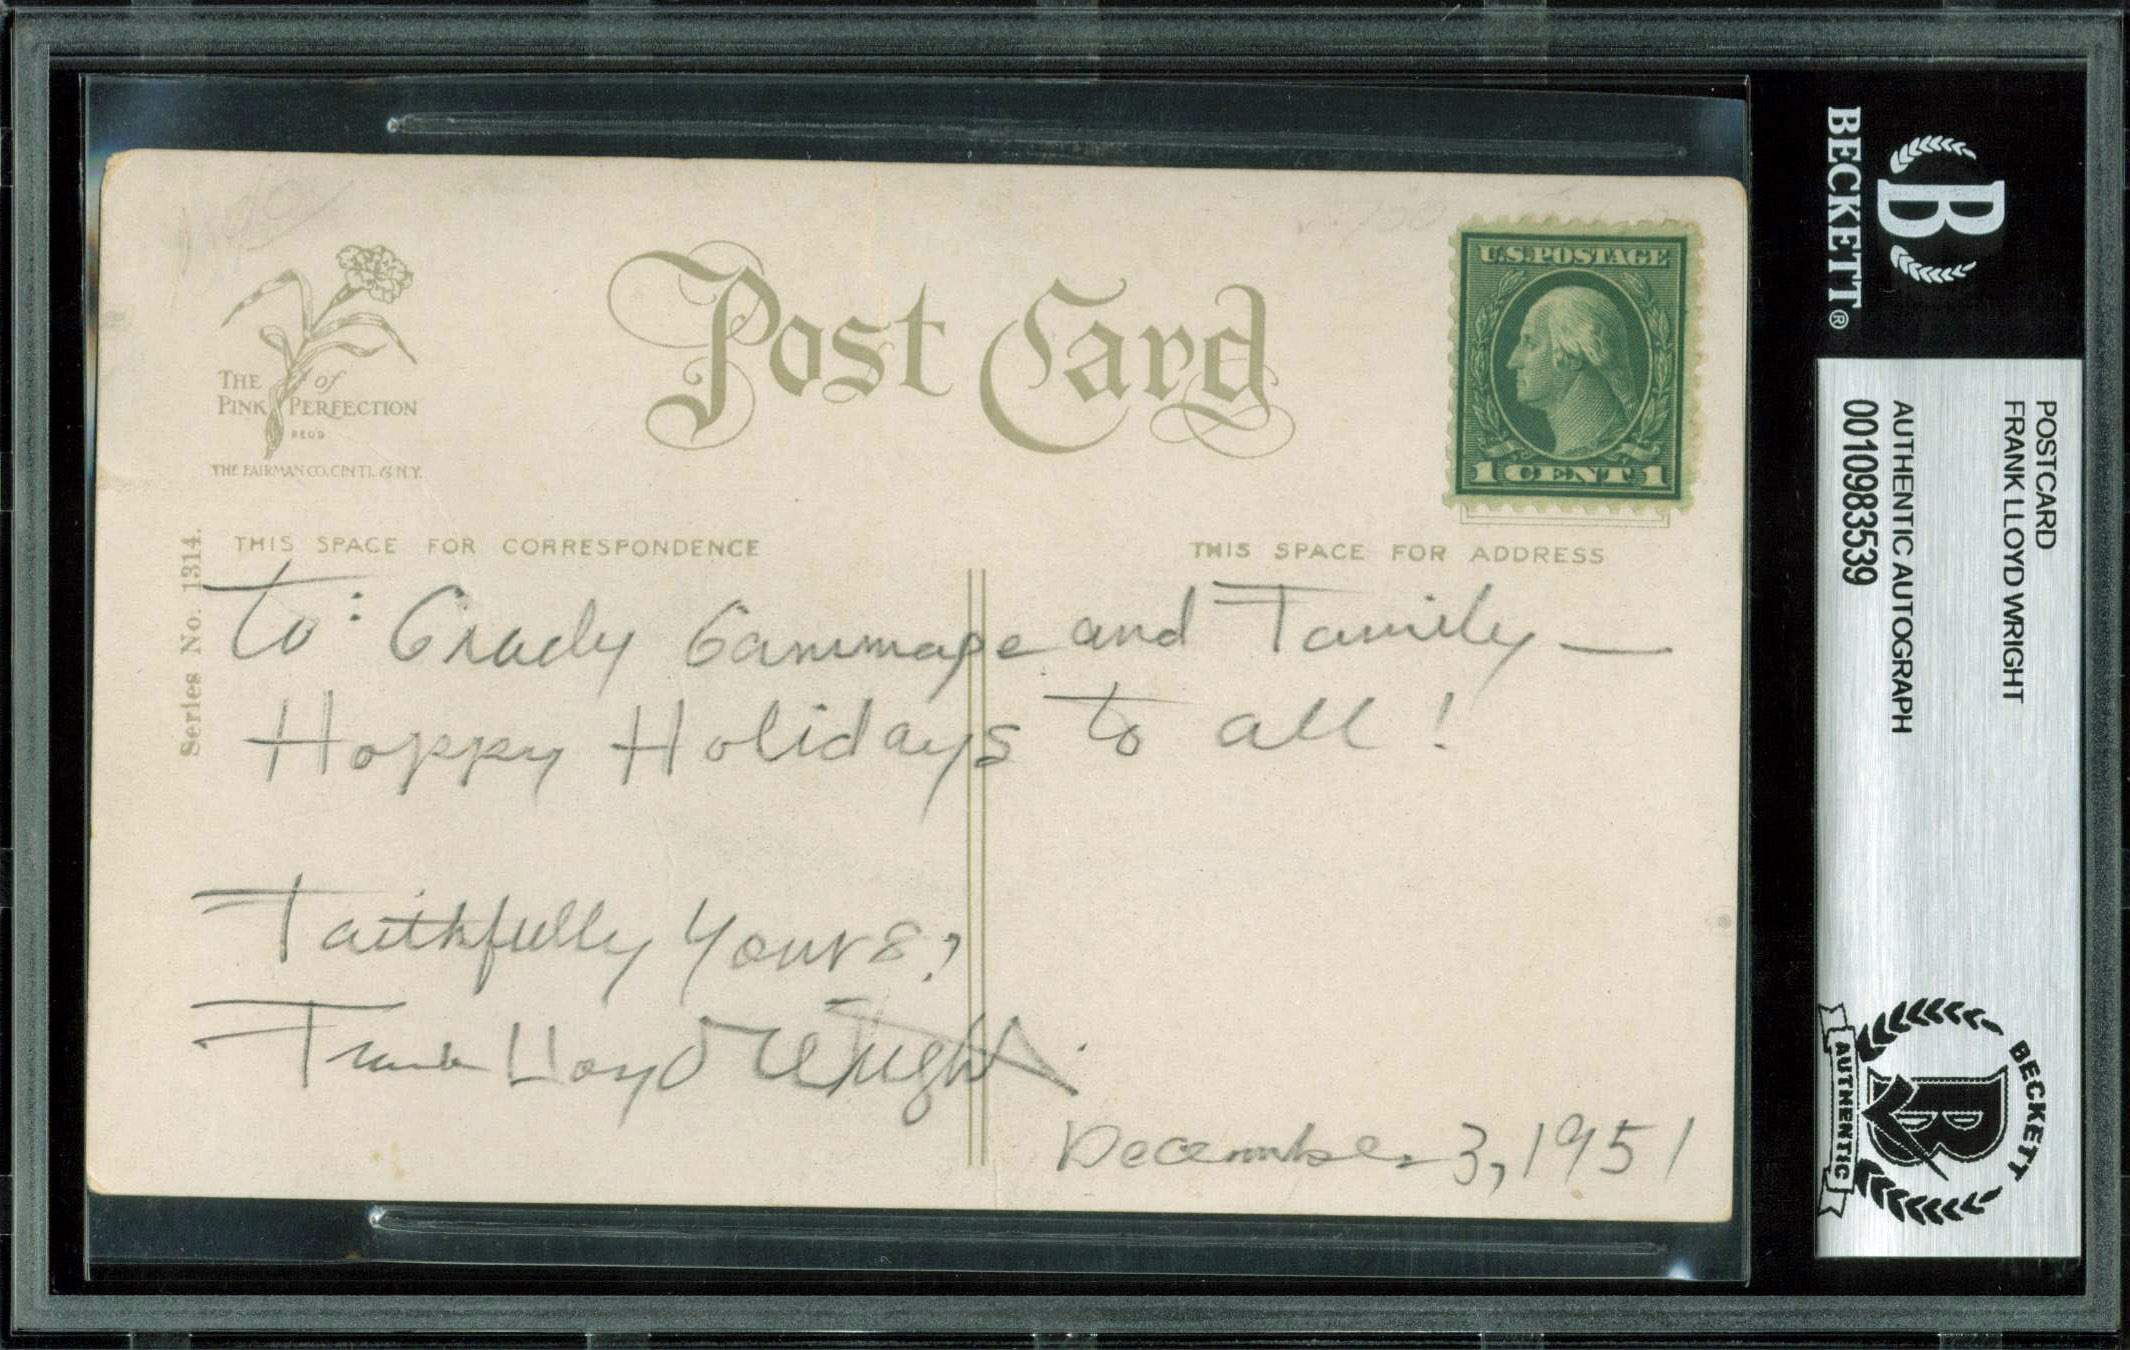 Post Card
U.S. POSTAGE
1 CENT 1
THE of
PINK PERFECTION
REGD
THE FAIRMAN CO. CINTI. & N.Y.
Series No. 1314.
THIS SPACE FOR CORRESPONDENCE
THIS SPACE FOR ADDRESS
To: Grady Gammage and Family —
Happy Holidays to all!
Faithfully Yours,
Frank Lloyd Wright
December 3, 1951
B
BECKETT®
POSTCARD
FRANK LLOYD WRIGHT
AUTHENTIC AUTOGRAPH
0010983539
BECKETT
B
AUTHENTIC